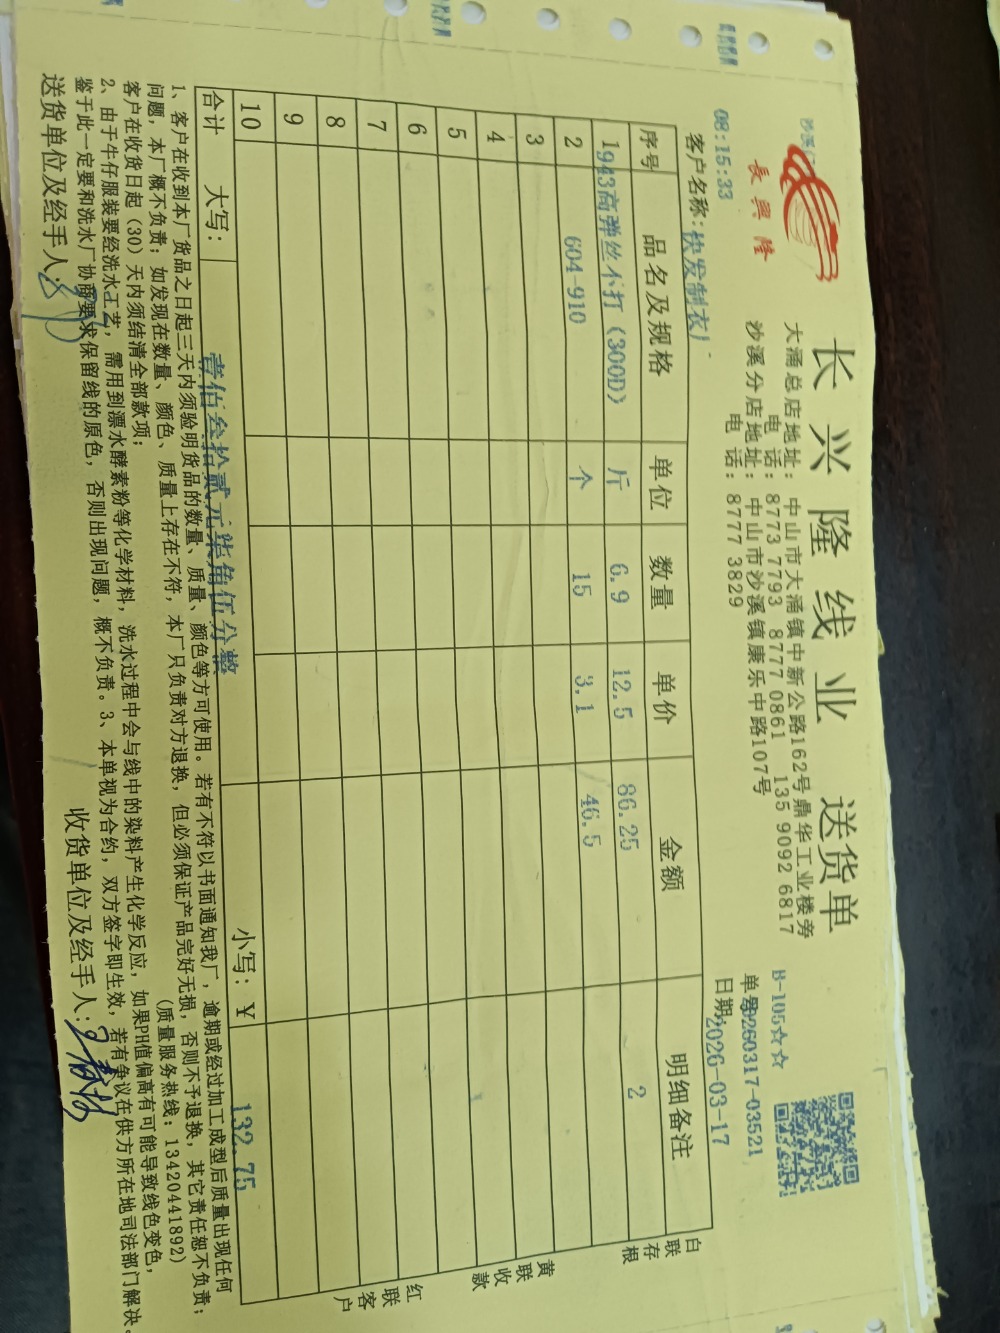 長興隆
长兴隆线业 送货单
大涌总店地址：中山市大涌镇中新公路162号鼎华工业楼旁
电 话：8773 7793 8777 0861 135 9092 6817
沙溪分店地址：中山市沙溪镇康乐中路107号
电 话：8777 3829
B-105☆☆
单号 260317-03521
日期 2026-03-17
08:15:33
客户名称：快发制衣厂
序号 品名及规格 单位 数量 单价 金额 明细备注
1 943高弹丝不打（300D） 斤 6.9 12.5 86.25 2
2 604-910 个 15 3.1 46.5
3
4
5
6
7
8
9
10
合计 大写：壹佰叁拾贰元柒角伍分整 小写：￥ 132.75
白联存根
黄联收款
红联客户
1、客户在收到本厂货品之日起三天内须验明货品的数量、质量、颜色等方可使用。若有不符以书面通知我厂，逾期或经过加工成型后质量出现任何
问题，本厂概不负责；如发现在数量、颜色、质量上存在不符，本厂只负责对方退换，但必须保证产品完好无损，否则不予退换，其它责任恕不负责；
客户在收货日起（30）天内须结清全部款项； （质量服务热线：13420441892）
2、由于牛仔服装要经洗水工艺，需用到漂水酵素粉等化学材料，洗水过程中会与线中的染料产生化学反应，如果PH值偏高有可能导致线色变色，
鉴于此一定要和洗水厂协商要求保留线的原色，否则出现问题，概不负责。3、本单视为合约，双方签字即生效，若有争议在供方所在地司法部门解决。
送货单位及经手人： 收货单位及经手人：